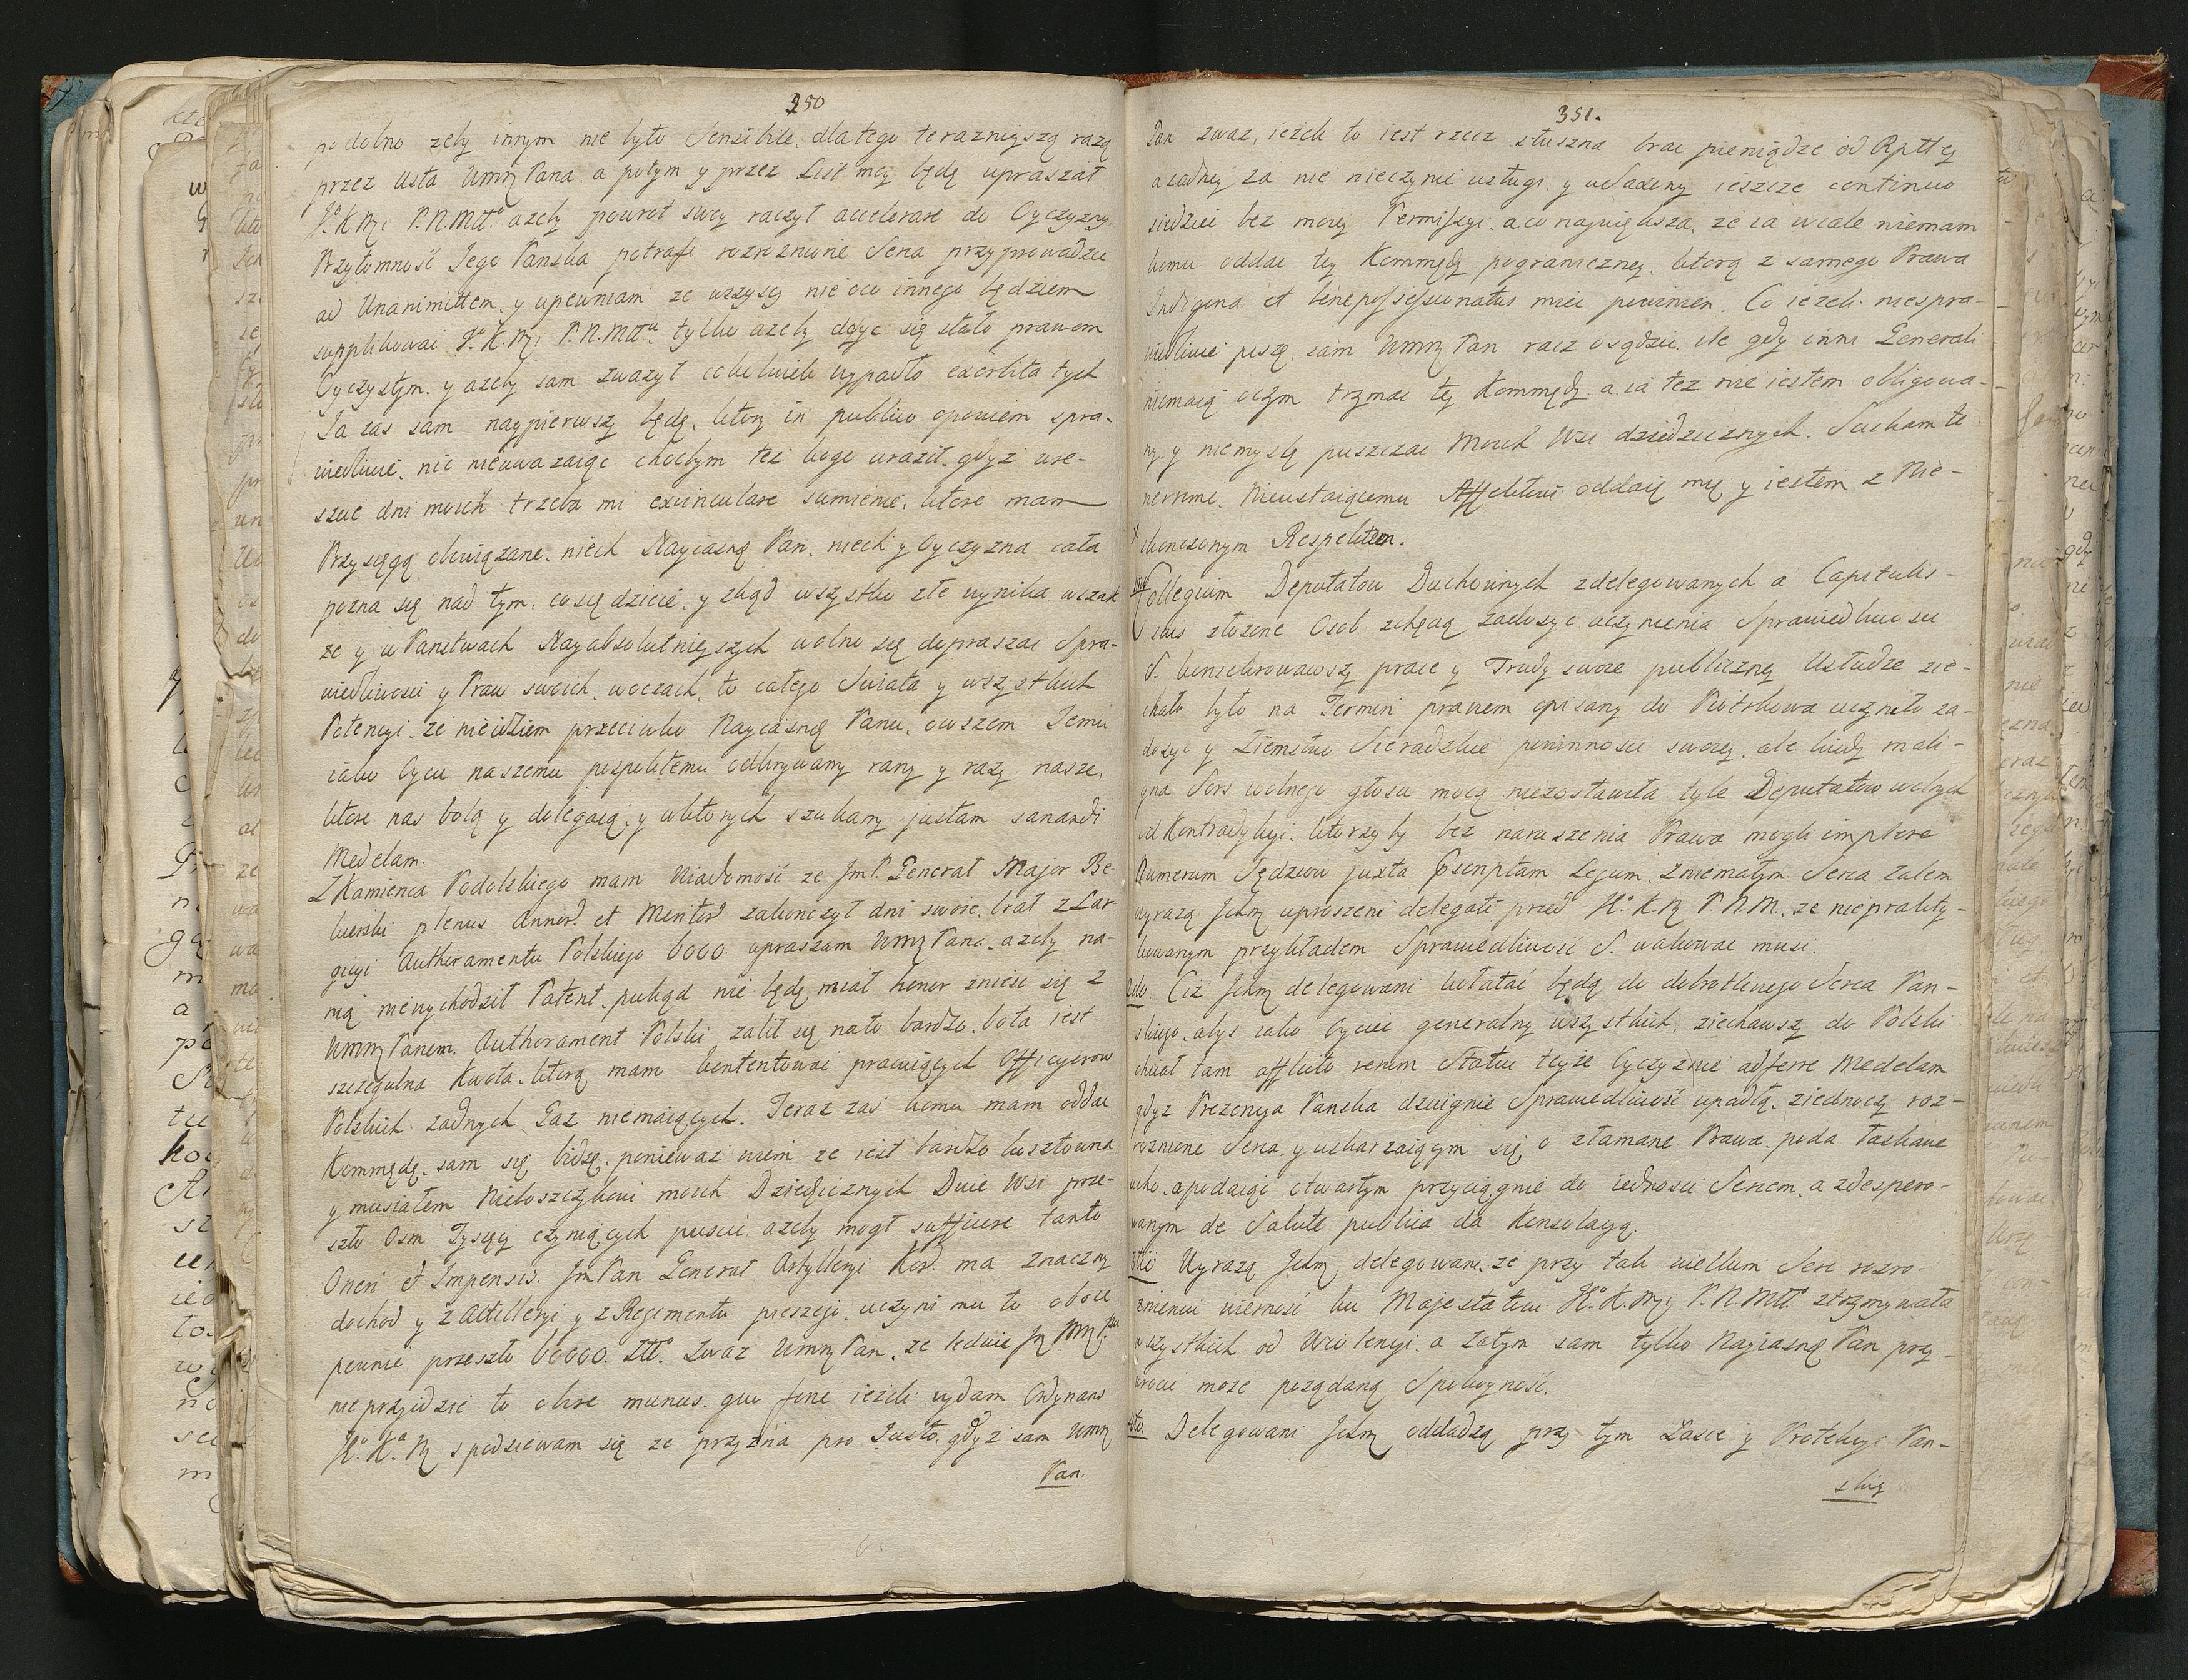 350
podobno zeby innym nie było Sensibile. dlatego teraznieyszą razą
przez Usta Wmę Pana. a potym y przez List moy będę upraszał
J.º K. Mci P. N. Młł.º azeby powrot swoy raczył accelerare do Oyczyzny
Przytomność Jego Panska potrafi rozroznione Serca przyprowadzic
ad Unanimitem. y upewniam ze wszyscy nie oco innego będziem
supplikowac J.º K. Mci P. N. Młł.u tylko azeby dosyc się stało prawom
Oyczystym. y azeby sam zwazył cokolwiek wypadło exorbita tych
Ja zas sam naypierwszy będę, ktory in publico opowiem spra-
wiedliwie, nic nieuwazaiąc chocbym tez kogo uraził. gdyz wre-
szcie dni moich trzeba mi exvinculare sumienie, ktore mam
Przysięgą obwiązane. niech Nayiasny Pan. niech y Oyczyzna cała
pozna się nad tym, co się dzieie, y zkąd wszystko złe wynika wszak
ze y w Panstwach Nayabsolutnieyszych wolno się dopraszac Spra-
wiedliwosci y Praw swoich. woczach, to całego Swiata y wszystkich
Potencyi. ze nieidziem przeciwko Nayiasnę Panu, owszem Jemu
iako Oycu naszemu pospolitemu odkrywamy rany y razy nasze,
ktore nas bolą y dolegaią, y wktorych szukamy justam sanandi
Medelam.
Z Kamienca Podolskiego mam Wiadomość ze Jm P. Generał Major Be-
kierski plenus Annor. et Meritor. zakonczył dni swoie. brał z Lar-
gicyi Authoramentu Polskiego 6000. upraszam Wmę Pana. azeby na-
nią niewychodził Patent. pokąd nie będę miał honor znieść się z
Wmę Panem. Authorament Polski zalił się nato bardzo. bota iest
szczegulna Kwota. ktorą mam kontentowac pracuiących Officyerow
Polskich zadnych Gaz niemaiących. Teraz zas komu mam oddac
Kommędę. sam się bidzę. poniewaz wiem ze iest bardzo kosztowna
y musiałem Nieboszczykowi moich Dziedzicznych Dwie Wsi prze-
szło Osm Tysięcy czyniących puscic. azeby mogł sufficere tanto
Oneri et Impensis. Jm Pan Generał Artylleryi Kor. ma znaczny
dochod y z Artilleryi y z Regimentu pieszego. uczyni mu to oboie
pewnie przeszło 60000. Złł.º Zwaz Wmę Pan, ze ledwie
nie przyidzie to obire munus. quo fine iezeli wydam Ordynans
J.º K.ª M spodziewam się ze przyzna pro Justo. gdyz sam Wmę
Pan.
351.
Pan zwaz, iezeli to iest rzecz słuszna brac pieniądze od Rpttey
a zadney za nie nieczynic usługi. y w Sadeny ieszcze continuo
siedziec bez moiey Permissyi. a co naywiększa, ze ia wcale niemam
komu oddac tey Kommędy pograniczney. ktorą z samego Prawa
Indigena et bene possessionatus miec powinien. Co iezeli niespra-
wiedliwie piszę. sam Wmę Pan racz osądzic. Ale gdy inni Generali
niemaią oczym trzymac tey Kommędy. a ia tez nie iestem obligowa-
ny y niemyslę puszczac Moich Wsi dziedzicznych.
Nieustaiącemu Affektowi oddaię mię y iestem z Nie-
skonczonym Respektem.
Collegium Deputatow Duchownych zdelegowanych á Capitulis
suis złozone Osob zchęcią zadosyc uczynienia Sprawiedliwosci
S. konsekrowawszy prace y Trudy swoie publiczney Usłudze zie-
chało było na Termin prawem opisany do Piotrkowa uczyniło za-
dosyc y Ziemstwo Sieradzkie powinnosci swoiey, ale kiedy mali-
gna Sors wolnego głosu mocą niezostawiła tyle Deputatow wolnych
od Kontradykcyi. ktorzyby bez naruszenia Prawa mogli implere
Numerum Sędziow juxta Praescriptam Legum. Zniemałym Serca zalem
wyrazą Jchmę uproszeni delegati przed J.º K. M P. N. M. ze nieprakty-
kowanym przykładem Sprawiedliwość S. wakowac musi.
2do. Ciz Jchmę delegowani kołatać będą do dobrotliwego Serca Pan-
skiego. abys iako Oyciec generalny wszystkich, ziechawszy do Polski
chciał tam afflicto rerum Statui teyze Oyczyznie adferre Medelam
gdyz Prezencya Panska dzwignie Sprawiedliwość upadłą. ziednoczy roz-
roznione Serca. y uskarzaiącym się o złamane Prawa. poda łaskawe
ucho. a podaiąc otwartym przyciągnie do iednosci Sercem, a zdespero-
wanym de Salute publica da Konsolacyą.
3tio Wyrazą Jchmę delegowani, ze przy tak wielkim Serc rozro-
znieniu wiernosć ku Majestatowi J.º K. Mci P. N. Młł.º ztrzymywała
wszystkich od Wiolencyi. a zatym sam tylko Nayiasny Pan przy-
wrocic moze poządaną Spokoynosć.
4to. Delegowani Jchmę oddadzą przy tym Łasce y Protekcyi Pan-
skiey